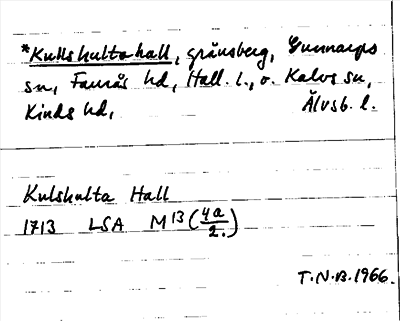 *Kullshultahall, gränsberg, Gunnarps
sn, Faurås hd, Hall. l., o. Kalvs sn,
Kinds hd, Älvsb. l.
Kulshulta Hall
1713 LSA M13 (4a/2.)
T.N.B. 1966.